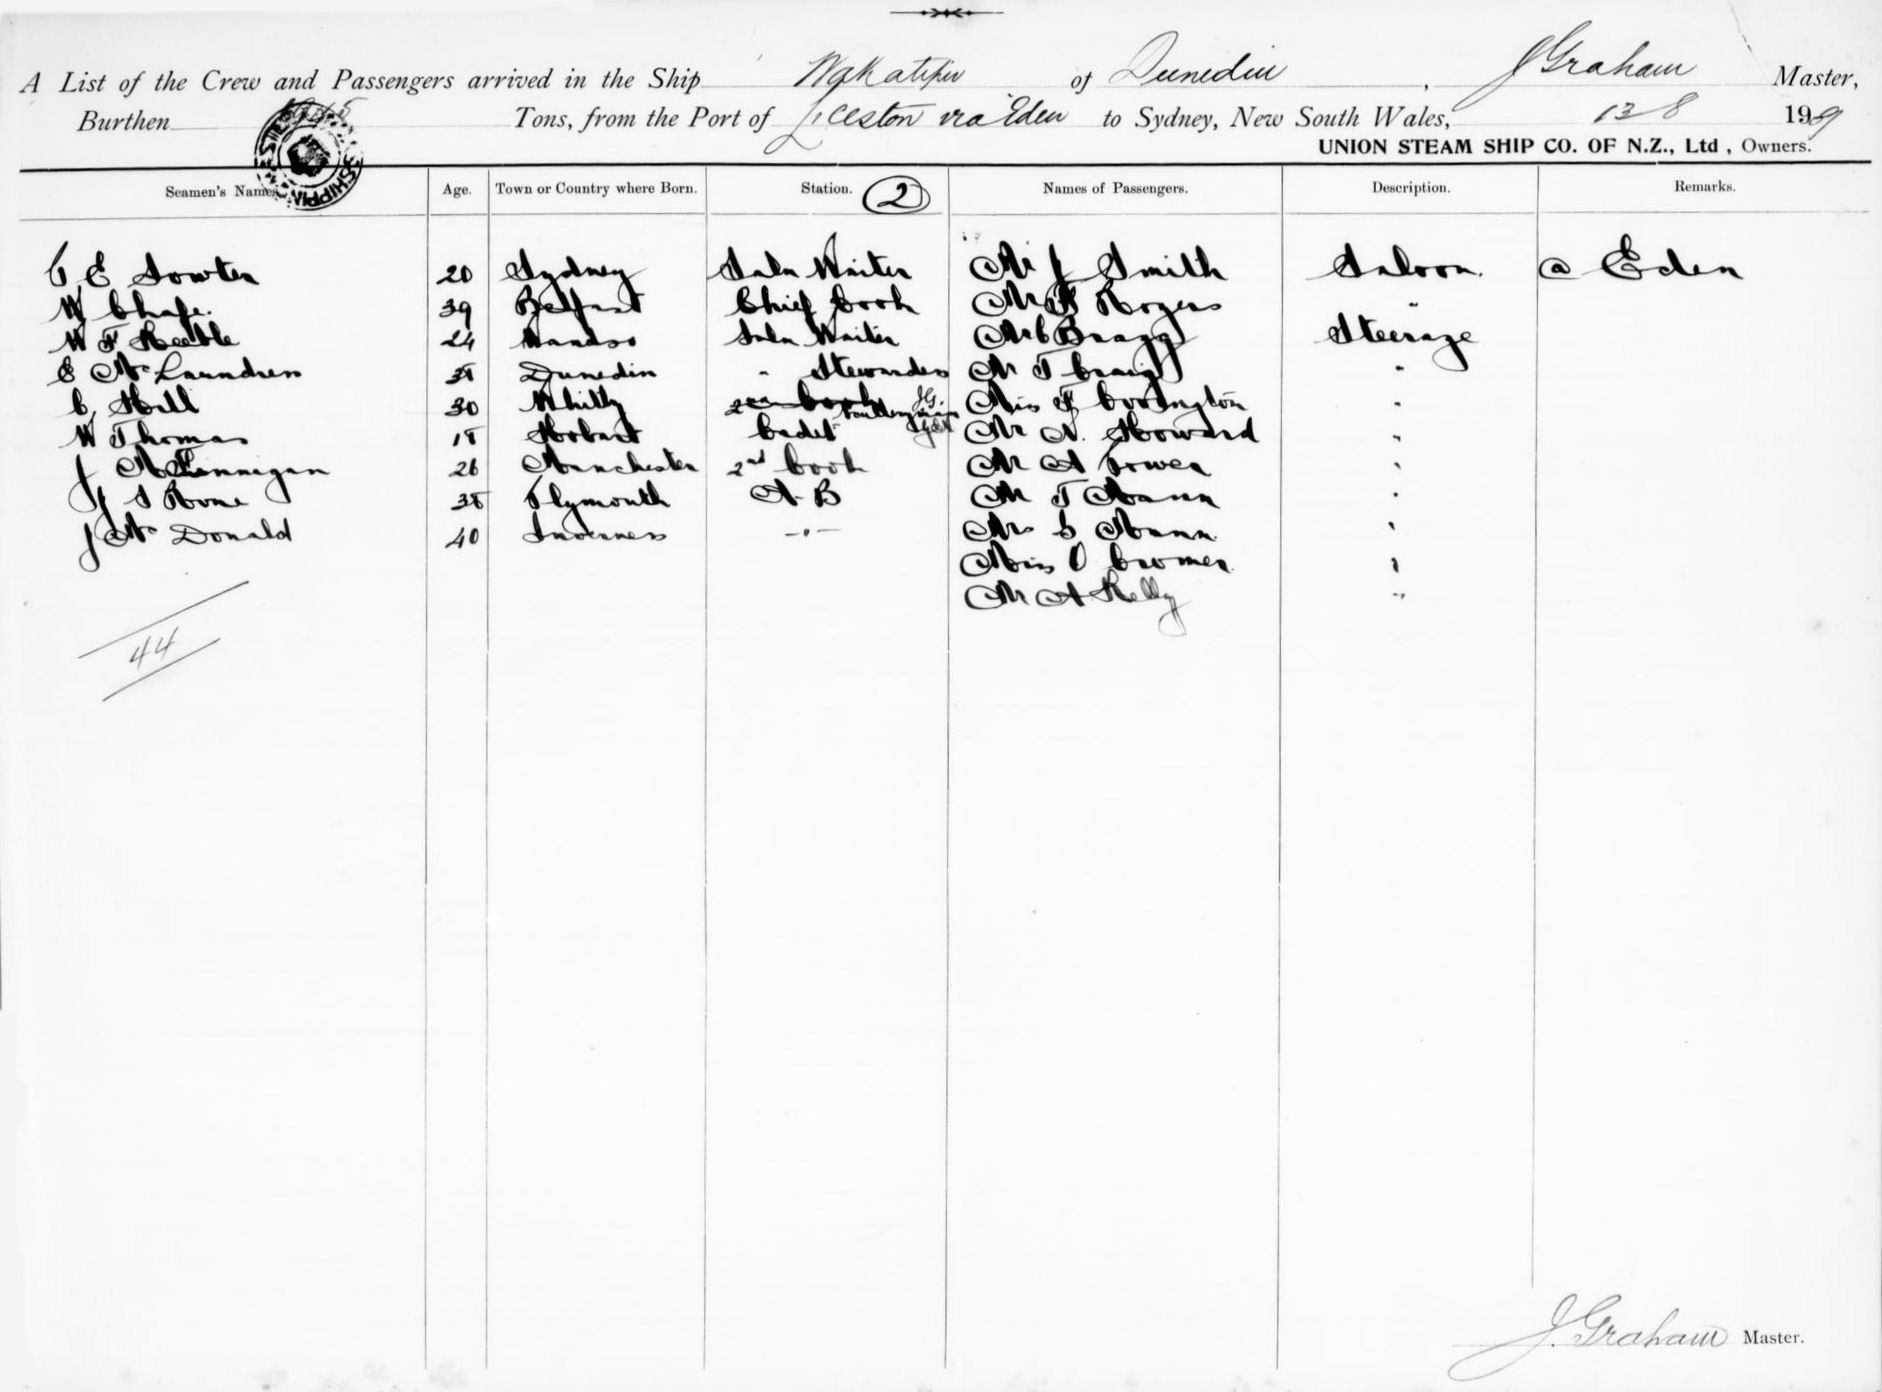 A List of the Crew and Passengers arrived in the Ship Wakatipu of Dunedin, J Graham Master,
Burthen 1945 Tons, from the Port of L'ceston via Eden to Sydney, New South Wales, 13 8 1909
UNION STEAM SHIP CO. OF N.Z., Ltd, Owners.
Seamen's Names. Age. Town or Country where Born. Station. 2 Names of Passengers. Description. Remarks.
E Sowter 20 Sydney Saln Waiter Mr J Smith Saloon. @ Eden
W Chafe. 39 Belfast Chief Cook Mr Rogers "
W F Keeble 24 Saln Waiter Mr C Bragg Steerage
E McLaundren Dunedin " Stewardess Mr T Craig "
C Hill 30 Whitby 2nd Cook Pantryman J.G. Miss F Codrington "
W Thomas 18 Hobart Cadet Mr N. Howard "
J 26 Manchester 2nd Cook Mr A Power "
J S Rowe 38 Plymouth A B Mr T Mann "
J McDonald 40 Inverness -"- Mrs S Mann "
Miss O Cromer "
Mr A Kelly "
44
J. Graham Master.